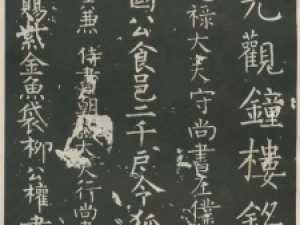 元觀鐘樓銘
祿大夫守尚書左僕
國公食邑二千戶令狐
兼侍書朝大夫行尚
賜紫金魚袋柳公權書